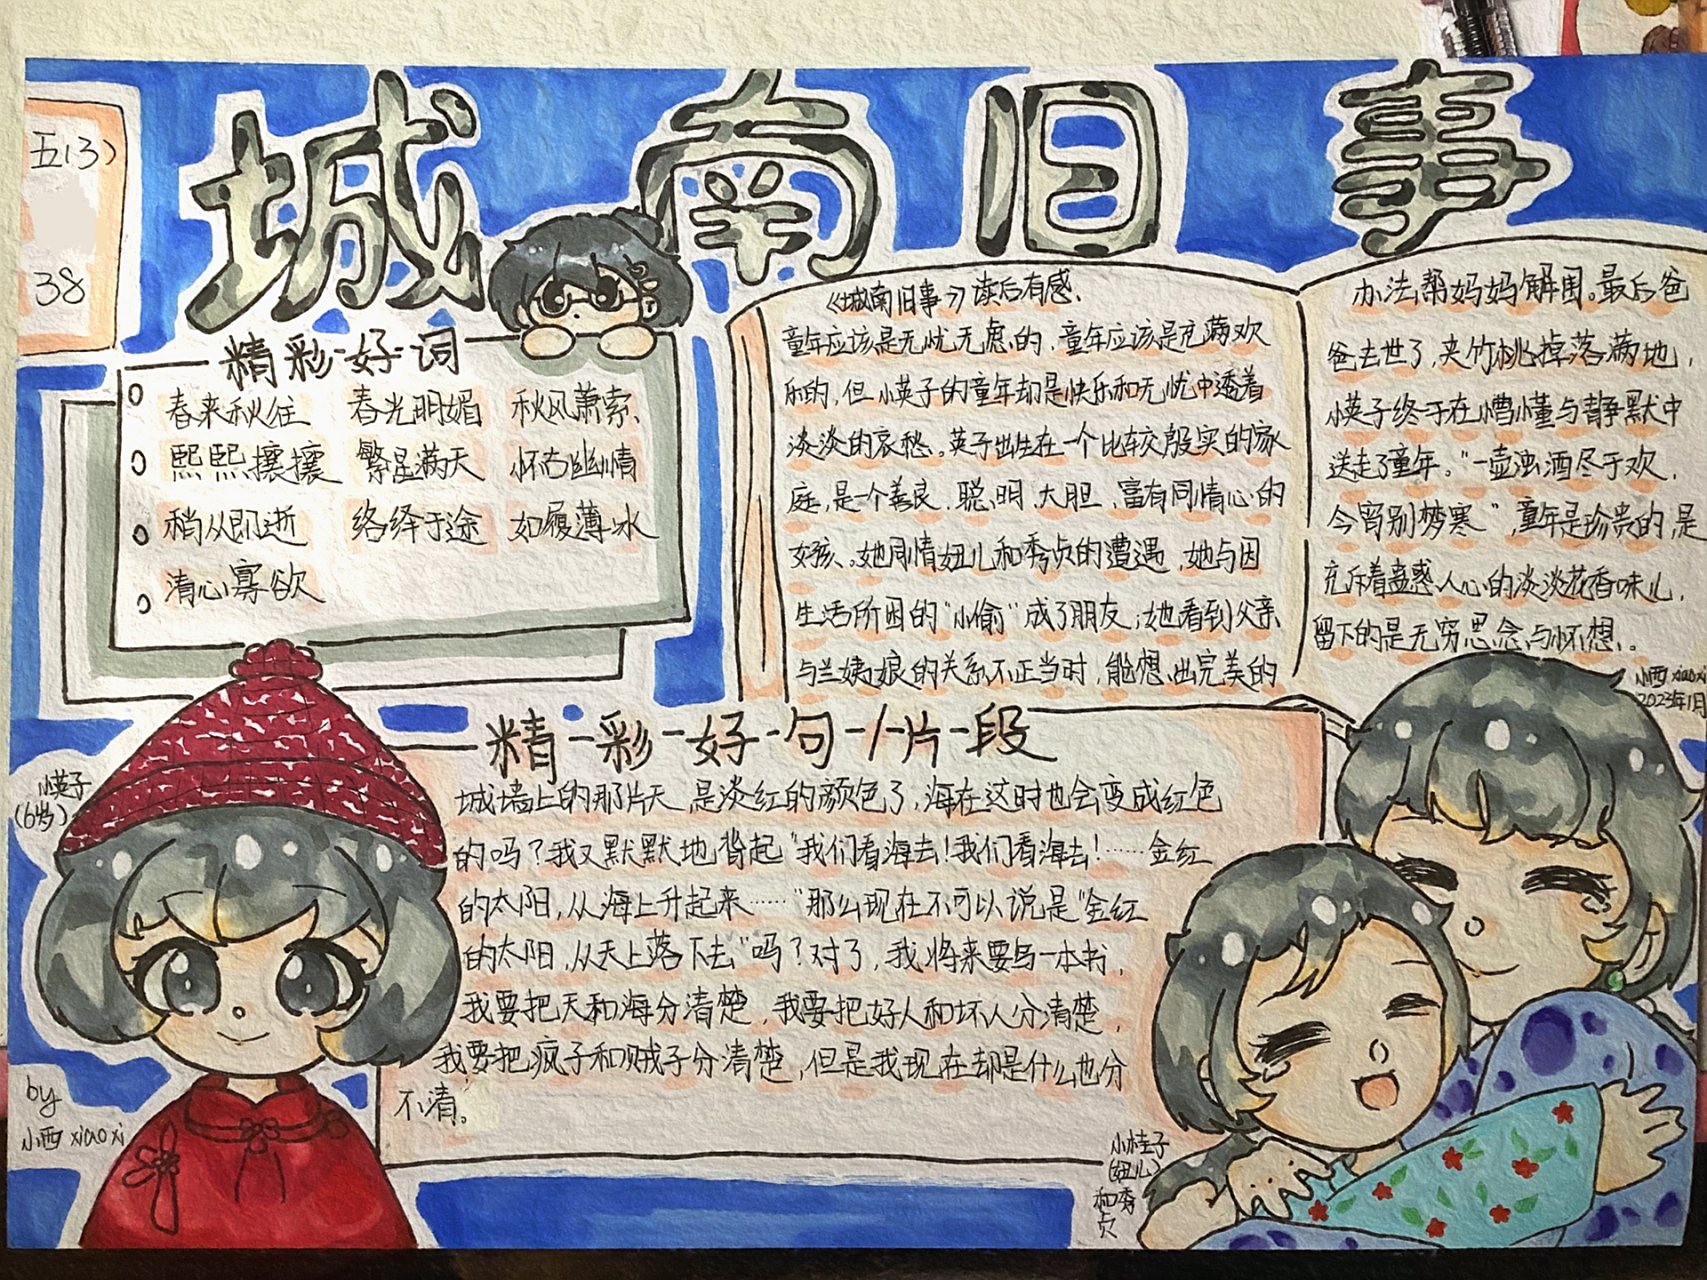 城南旧事
五(3)
38
精彩好词
春来秋住 春光明媚 秋风萧索、
熙熙攘攘 繁星满天 怀古幽情
稍从即逝 络绎于途 如履薄冰
清心寡欲
《城南旧事》读后有感、
童年应该是无忧无虑的，童年应该是充满欢
乐的，但小英子的童年却是快乐和无忧中透着
淡淡的哀愁。英子出生在一个比较殷实的家
庭，是一个善良、聪明、大胆、富有同情心的
女孩。她同情妞儿和秀贞的遭遇，她与因
生活所困的“小偷”成了朋友；她看到父亲
与兰姨娘的关系不正当时，能想出完美的
办法帮妈妈解围。最后爸
爸去世了，夹竹桃掉落满地，
小英子终于在懵懂与静默中
送走了童年。“一壶浊酒尽于欢，
今宵别梦寒”，童年是珍贵的，是
充斥着蛊惑人心的淡淡花香味儿，
留下的是无穷思念与怀想。
小西xiaoxi
2023年1月
精彩好句/片段
城墙上的那片天，是淡红的颜色了，海在这时也会变成红色
的吗？我又默默地背起“我们看海去！我们看海去！……金红
的太阳，从海上升起来……”那么现在不可以说是“金红
的太阳，从天上落下去”吗？对了，我将来要写一本书，
我要把天和海分清楚，我要把好人和坏人分清楚，
我要把疯子和贼子分清楚，但是我现在却是什么也分
不清。
小英子
(6岁)
by
小西 xiaoxi
小桂子
(妞儿)
和秀
贞